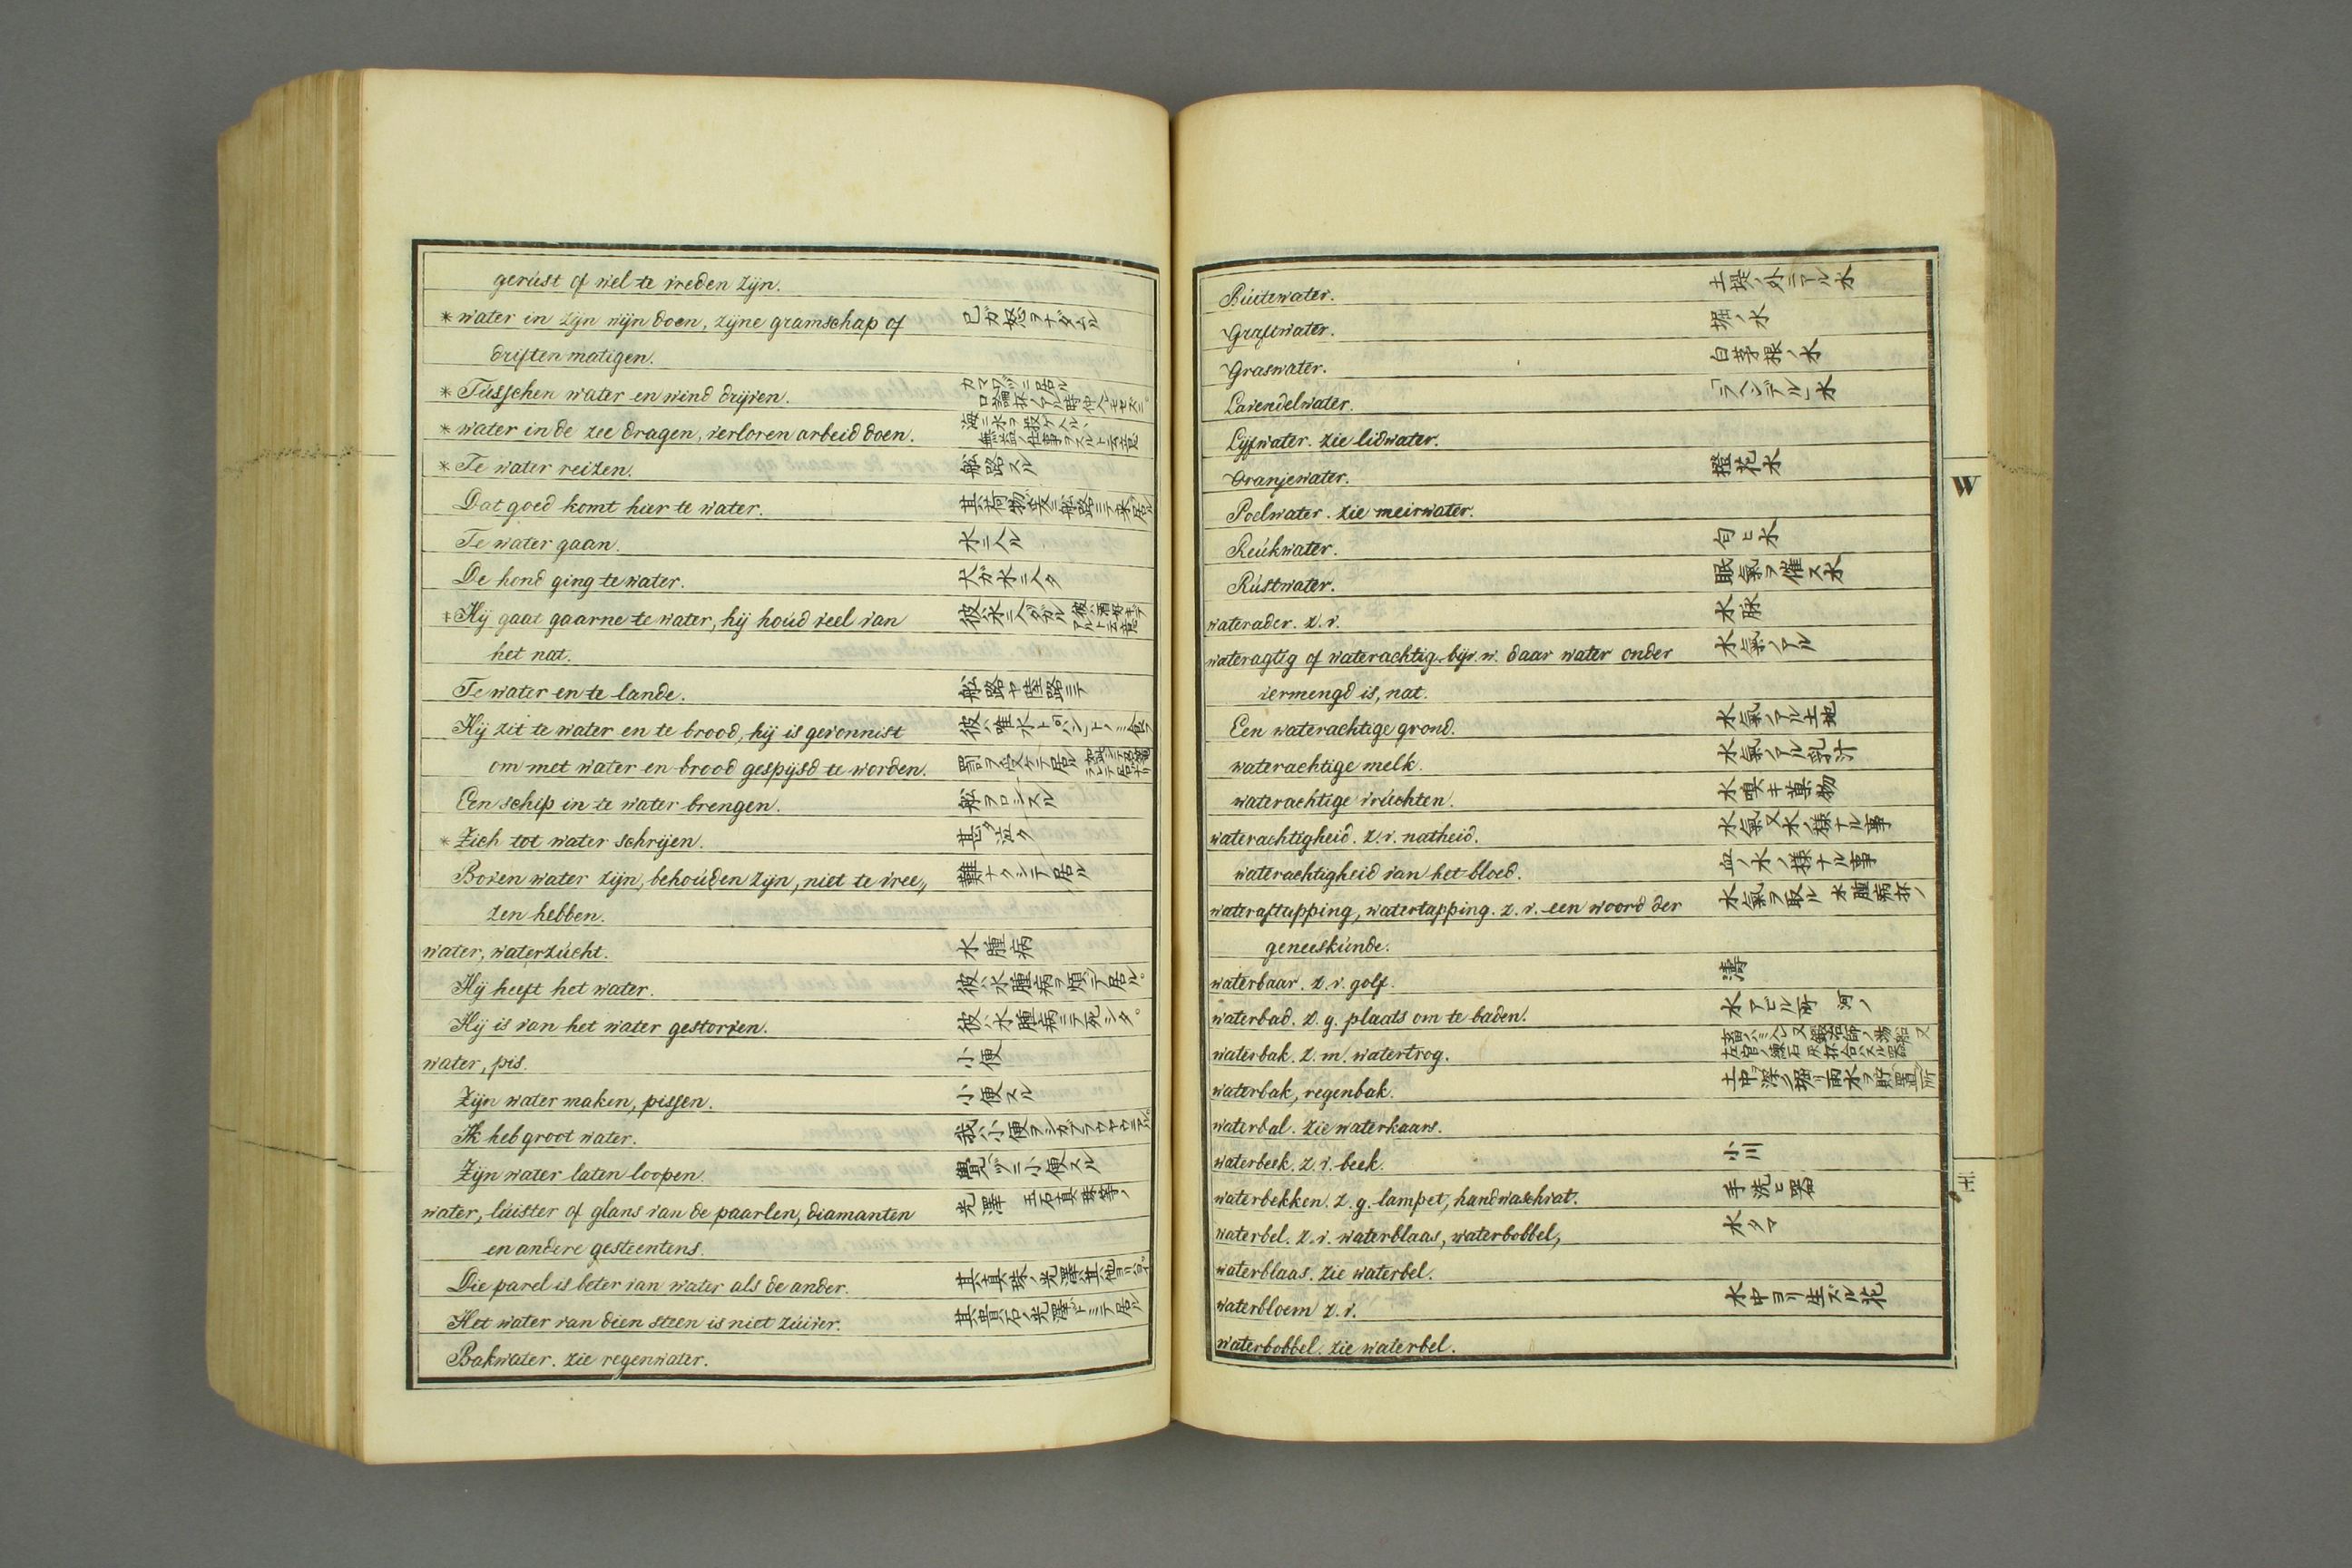 gerúst of wel te vreden zijn.
* water in zijn wijn doen, zijne gramschap of 己ガ怒ヲナダムル
driften matigen.
* Tússchen water en wind drijven. カマワズニ居ル
口論抔ノアル時仲ヘモセズニ。
* water in de zee dragen, verloren arbeid doen. 海ニ水ヲ投ケ入ル、
無益ノ仕事ヲスルト云意
* Te water reizen. 舩路スル
Dat goed komt hier te water. 其荷物ガ爰ニ舩路ニテ来居ル
Te water gaan. 水ニ入ル
De hond ging te water. 犬ガ水ニ入タ
* Hij gaat gaarne te water, hij hoúd veel van 彼ハ水ニ入タガル 彼ハ酒好キデ
アルト云意
het nat.
Te water en te lande. 舩路ヤ陸路ニテ
Hij zit te water en te brood, hij is gevonnist 彼ハ唯水ト「パン」トノミ食フ
om met water en brood gespijsd te worden. 罰ヲ受ケテ居ル
Een schip in te water brengen. 舩ヲロシスル
* Zich tot water schrijen. 甚タ泣ク
Boven water zijn, behoúden zijn, niet te vree„ 難ナクシテ居ル
zen hebben.
water, waterzúcht. 水腫病
Hij heeft het water. 彼ハ水腫病ヲ煩テ居ル。
Hij is van het water gestorven. 彼ハ水腫病ニテ死シタ。
water, pis. 小便
Zijn water maken, pissen. 小便スル
Ik heb groot water. 我ハ小便ヲ
Zijn water laten loopen. 覺ヘズニ小便スル
water, lúister of glans van de paarlen, diamanten 光澤 玉石真珠等ノ
en andere gesteentens.
Die parel is beter van water als de ander. 其真珠ノ光澤ハ其他ヨリヨイ。
Het water van dien steen is niet zúiver. 其貴石ノ光澤ガ
Bakwater. zie regenwater.
Búitewater. 土堤ノ外ニアル水
Graftwater. 堀ノ水
Graswater. 白茅根ノ水
Lavendelwater. 「ラヘンデル」水
Lijfwater. zie lidwater.
Oranjewater. 橙花水
Poelwater. zie meirwater.
Reúkwater. 匂ヒ水
Rústwater. 眠氣ヲ催ス水
waterader. z.v. 水脉
wateragtig of waterachtig. bijv. w. daar water onder 水氣ノアル
vermengd is, nat.
Een waterachtige grond. 水氣ノアル土地
waterachtige melk. 水氣ノアル乳汁
waterachtige vrúchten. 水嗅キ菓物
waterachtigheid. z.v. natheid. 水氣又水ノ様ナル事
waterachtigheid van het bloed. 血ノ水ノ様ナル事
wateraftapping, watertapping. z.v. een woord der 水氣ヲ取ル 水腫病抔ノ
geneeskúnde.
waterbaar. z.v. golf. 濤
waterbad. z.g. plaats om te baden. 水アビル所 河ノ
waterbak. z.m. watertrog.
waterbak, regenbak. 土中ヲ深ク堀リ雨水ヲ貯置所
waterbal. zie waterkaars.
waterbeek. z.v. beek. 小川
waterbekken. z.g. lampet, handwaschvat. 手洗ヒ器
waterbel. z.v. waterblaas, waterbobbel, 水タマ
waterblaas. zie waterbel.
waterbloem z.v. 水中ヨリ生ズル花
waterbobbel. zie waterbel.
W